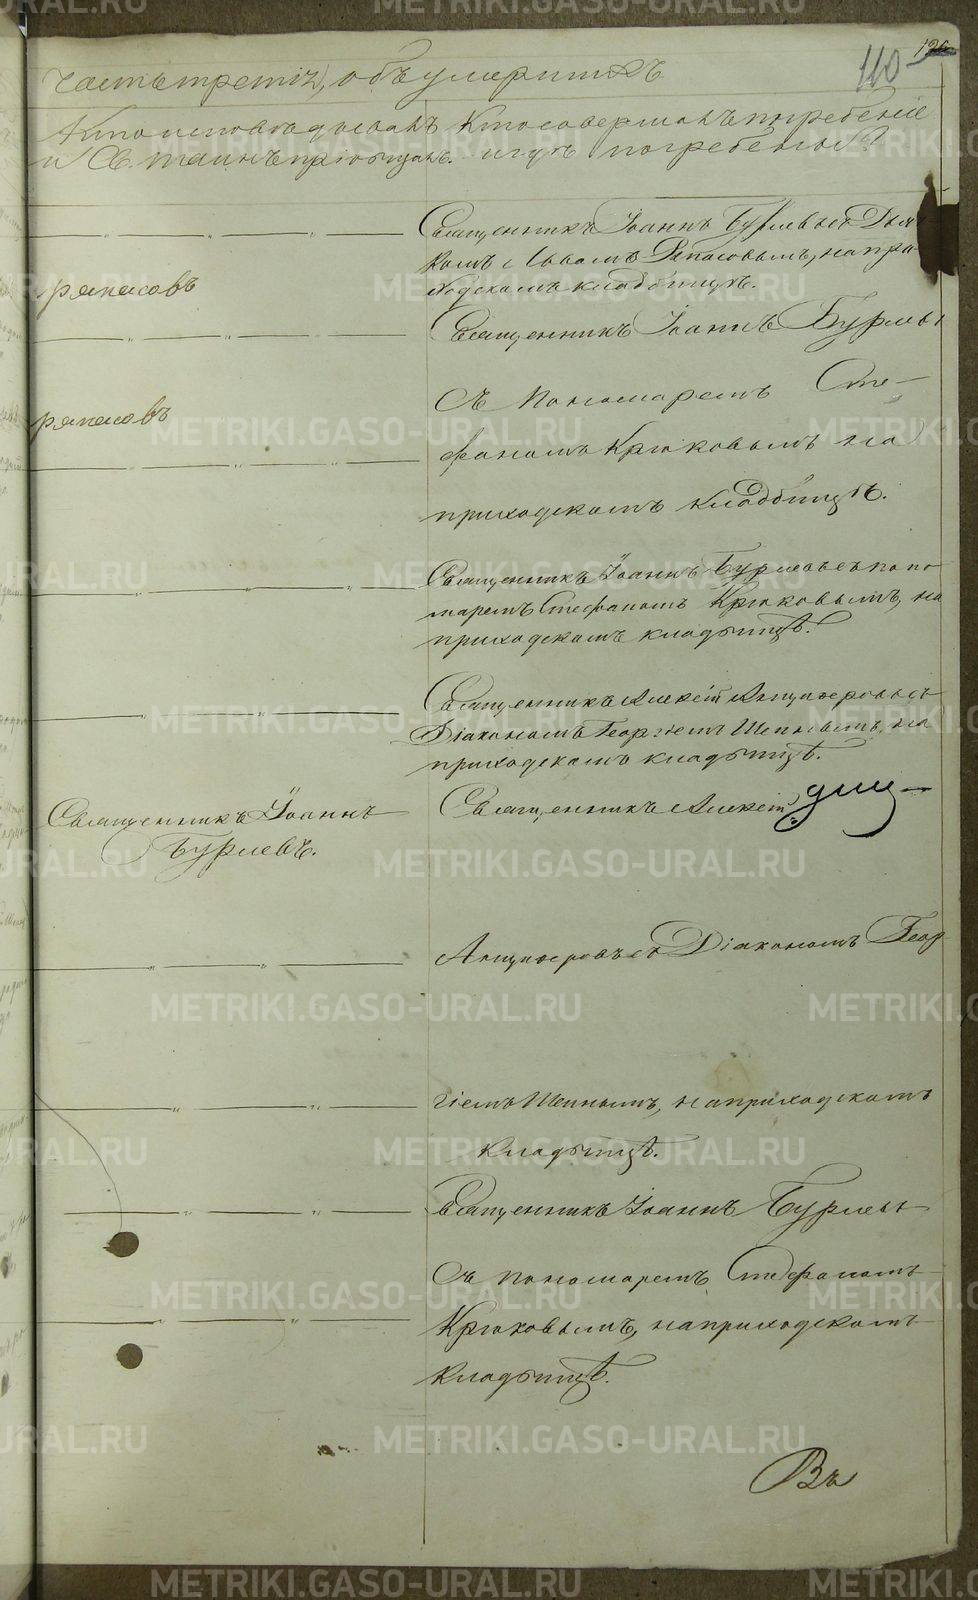 110
Часть третія, объ умершихъ
Кто исповѣдывалъ Кто совершалъ погребеніе
и Св. таинъ пріобщалъ. и гдѣ погребены?
Священникъ Іоаннъ Бурлевъ съ Дьяч
комъ на при
ходскомъ кладбищѣ.
Священникъ Іоаннъ Бурлевъ
съ Пономаремъ Сте-
фаномъ Крюковымъ на
приходскомъ кладбищѣ.
Священникъ Іоаннъ Бурлевъ съ поно
маремъ Стефаномъ Крюковымъ, на
приходскомъ кладбищѣ.
Священникъ Алексѣй Анциферовъ съ
Діакономъ Георгіемъ на
приходскомъ кладбищѣ.
Священникъ Іоаннъ
Бурлевъ.
Священникъ Алексѣй
Анциферовъ съ Діакономъ Геор
гіемъ на приходскомъ
кладбищѣ.
Священникъ Іоаннъ Бурлевъ
съ пономаремъ Стефаномъ
Крюковымъ, на приходскомъ
кладбищѣ.
Въ
METRIKI.GASO-URAL.RU